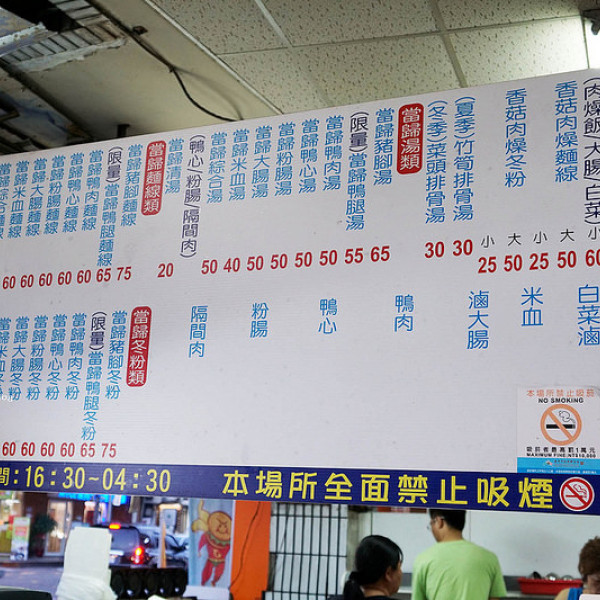 (肉燥飯/大腸/白菜)
香菇肉燥麵線
香菇肉燥冬粉
(夏季)竹筍排骨湯
(冬季)菜頭排骨湯
當歸湯類
當歸豬腳湯
(限量)當歸鴨腿湯
當歸鴨肉湯
當歸鴨心湯
當歸粉腸湯
當歸大腸湯
當歸米血湯
當歸綜合湯
(鴨心/粉腸/隔間肉)
當歸清湯
當歸麵線類
當歸豬腳麵線
(限量)當歸鴨腿麵線
當歸鴨肉麵線
當歸鴨心麵線
當歸粉腸麵線
當歸大腸麵線
當歸米血麵線
當歸綜合麵線
小 大 小 大 小
60 60 60 60 60 65 75 20 50 40 50 50 50 50 55 65 30 30 25 50 25 50 60
白菜滷
米血
滷大腸
鴨肉
鴨心
粉腸
隔間肉
當歸冬粉類
當歸豬腳冬粉
(限量)當歸鴨腿冬粉
當歸鴨肉冬粉
當歸鴨心冬粉
當歸粉腸冬粉
當歸大腸冬粉
當歸米血冬粉
60 60 60 60 60 65 75
本場所禁止吸菸
NO SMOKING
吸菸者最高罰1萬元
MAXIMUM FINE:NT$10,000
間:16:30~04:30 本場所全面禁止吸煙